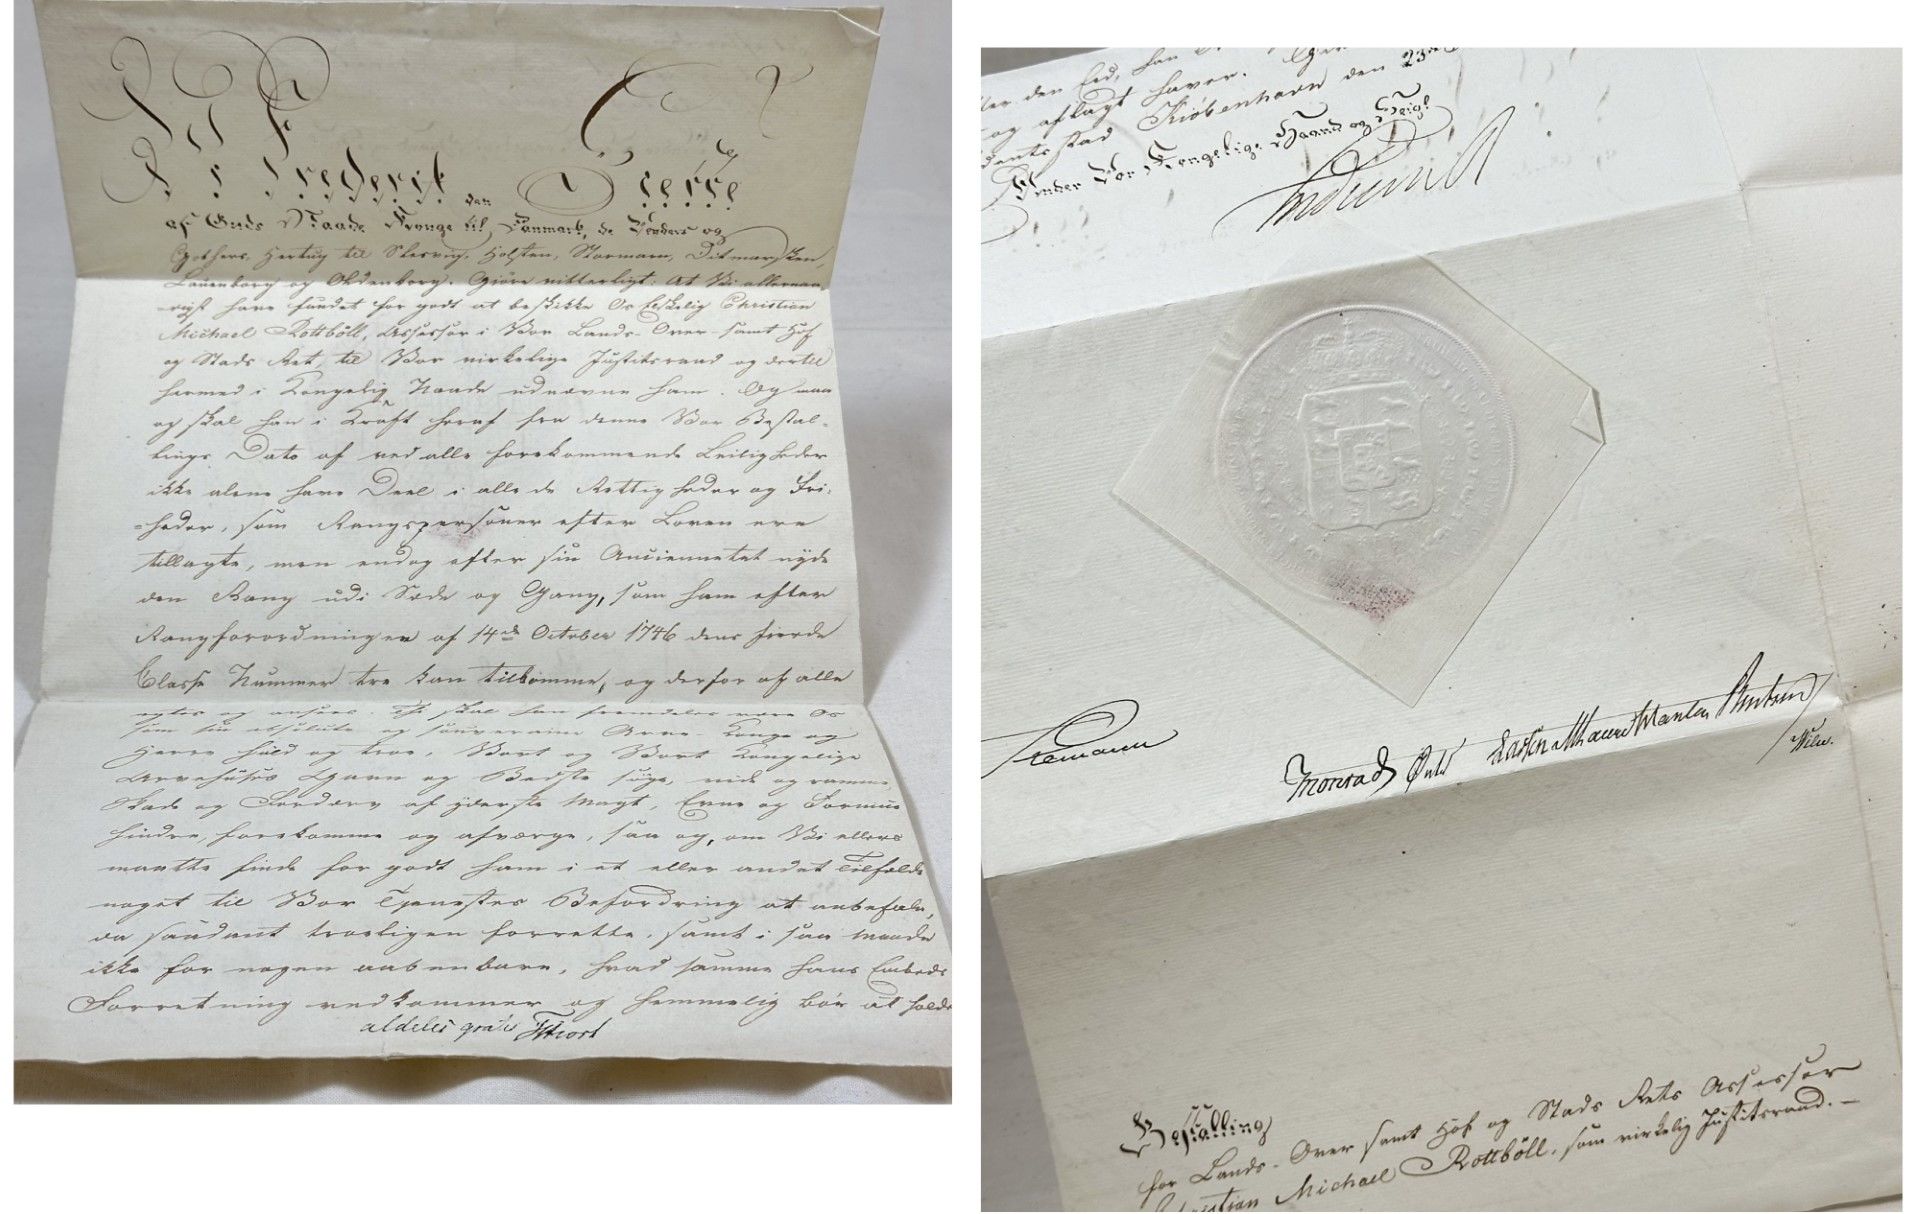 Vi Frederik den Siette
af Guds Naade Konge til Danmark, de Venders og
Gothers, Hertug til Slesvig, Holsten, Stormarn, Ditmarsken,
Lauenborg og Oldenborg. Giøre vitterligt: At Vi allernaa-
digst have fundet for godt at beskikke Os Elskelig Christian
Michael Rottböll, Assessor i Vor Lands-Over- samt Hof
og Stads Ret, til Vor virkelige Justitsraad og dertil
hermed i Kongelig Naade udnævne ham. Og maa
og skal han i Kraft heraf fra denne Vor Bestal-
lings Dato af ved alle forekommende Leiligheder
ikke alene have Deel i alle de Rettigheder og Fri-
=heder, som Rangspersoner efter Loven ere
tillagte, men endog efter sin Anciennetet nyde
den Rang udi Sæde og Gang, som ham efter
Rangforordningen af 14de October 1746 dens fierde
Classe Nummer tre kan tilkomme, og derfor af alle
agtes og ansees. Thi skal han fremdeles være Os
som sin absolute og souveraine Arve-Konge og
Herre huld og troe, Vort og Vort Kongelige
Arvehuses Gavn og Bedste søge, vide og ramme,
Skade og Fordærv af yderste Magt, Evne og Formue
hindre, forekomme og afværge, saa og, om Vi ellers
maatte finde for godt ham i et eller andet Tilfælde
noget til Vor Tjenestes Befordring at anbefale,
da saadant troeligen forrette, samt i saa Maade
ikke for nogen aabenbare, hvad samme hans Embeds
Forretning vedkommer og hemmelig bør at holde
aldeles gratis
efter den Eed, han
og aflagt haver.
Kiöbenhavn den 23de
Under Vor Kongelige Haand og Seigl
Monrad
Bestalling
for Lands-Over samt Hof og Stads Rets Assessor
Christian Michael Rottböll, som virkelig Justitsraad.